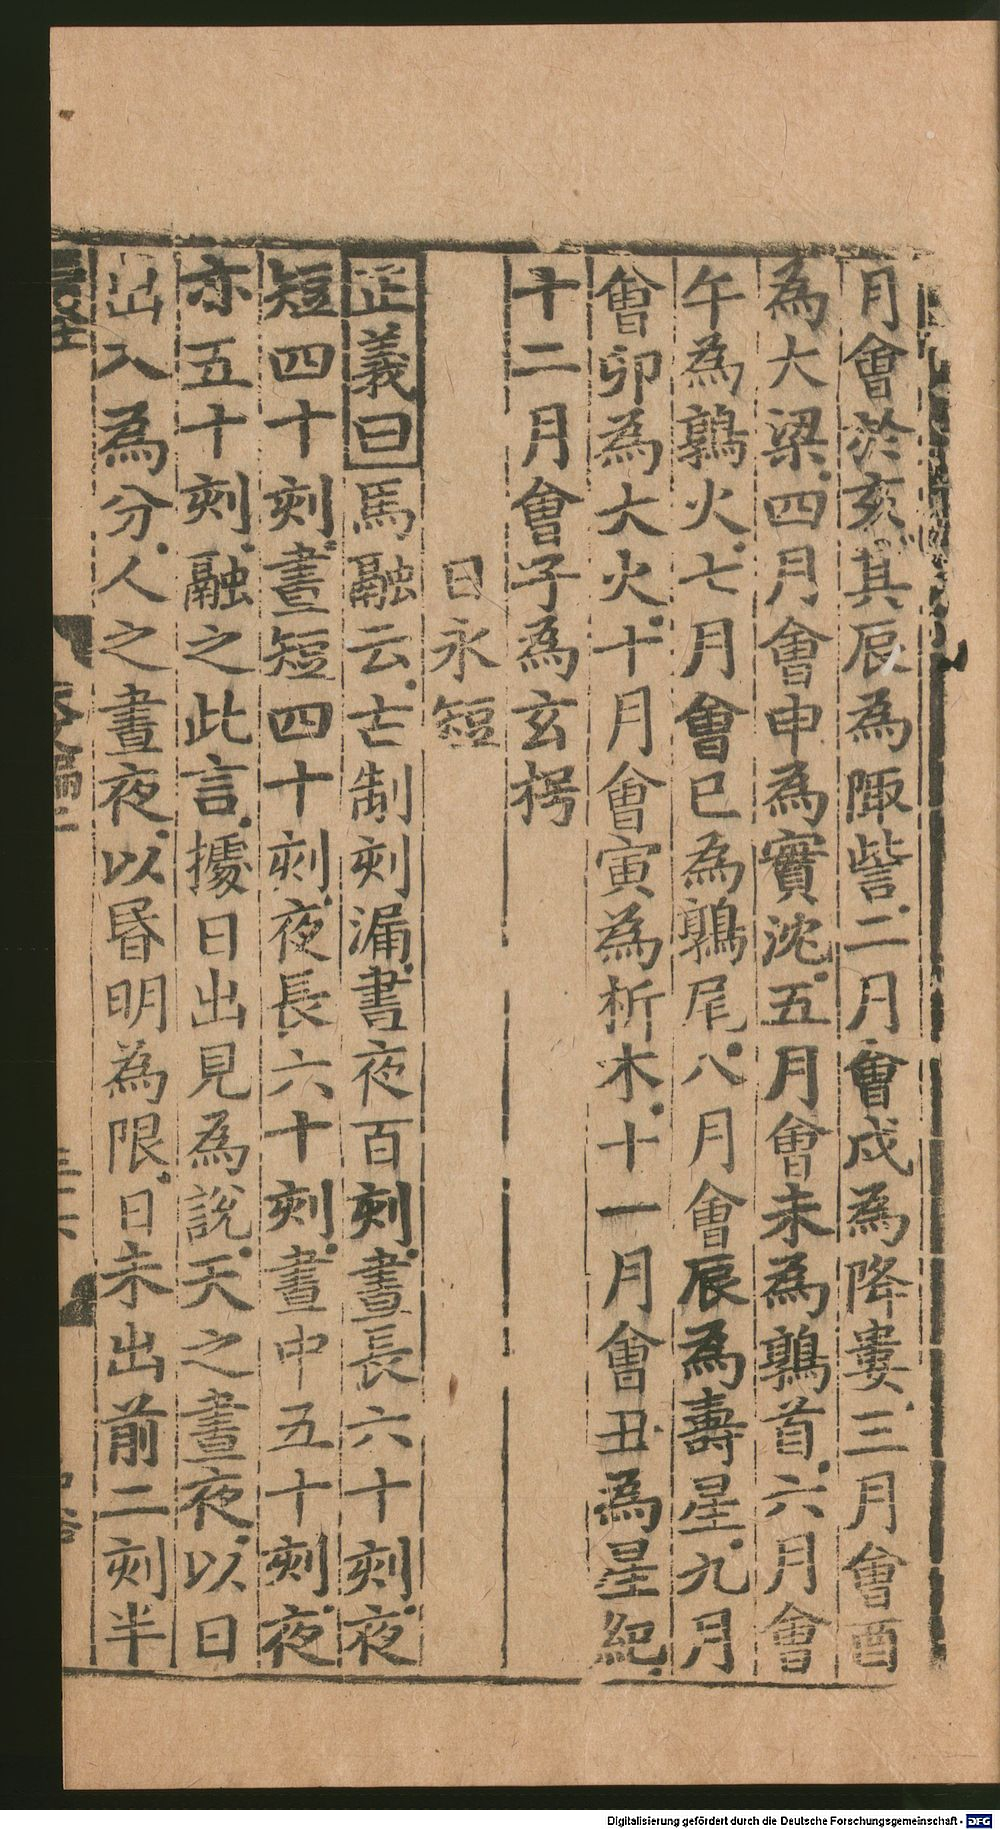 月會於亥其辰為陬訾二月會戍為降婁三月會酉
為大梁四月會申為實沈五月會未為鶉首六月會
午為鶉火七月會巳為鶉尾八月會辰為壽星九月
會卯為大火十月會寅為析木十一月會丑為星紀
十二月會子為玄枵
日永短
正義曰馬融云古制刻漏晝夜百刻晝長六十刻夜
短四十刻晝短四十刻夜長六十刻晝中五十刻夜
亦五十刻融之此言據日出見為說天之晝夜以日
出入為分人之晝夜以昏明為限日未出前二刻半
Digitalisierung gefördert durch die Deutsche Forschungsgemeinschaft - DFG